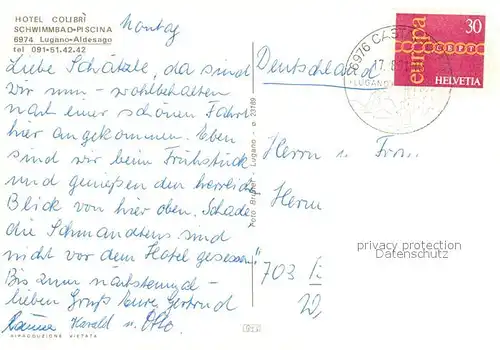 HOTEL COLIBRÌ
SCHWIMMBAD-PISCINA
6974 Lugano-Aldesago
tel 091-51.42.42
Montag
Liebe Schätzle, da sind
wir nun - wohlbehalten
nach einer schönen Fahrt
hier angekommen. Eben
sind wir beim Frühstück
und genießen den herrlichen
Blick von hier oben. Schade
die Schmandtens sind
nicht vor dem Hotel gesessen!
Bis zum nächstenmal -
lieben Gruß Eure Gertrud
Harald u. Otto.
RIPRODUZIONE VIETATA
Foto Brunel - Lugano - o. 23789
Deutschland
Herrn u. Frau
Herrn
703
6976 CASTA
17.8
LUGANO
europa
CEPT
30
HELVETIA
privacy protection
Datenschutz